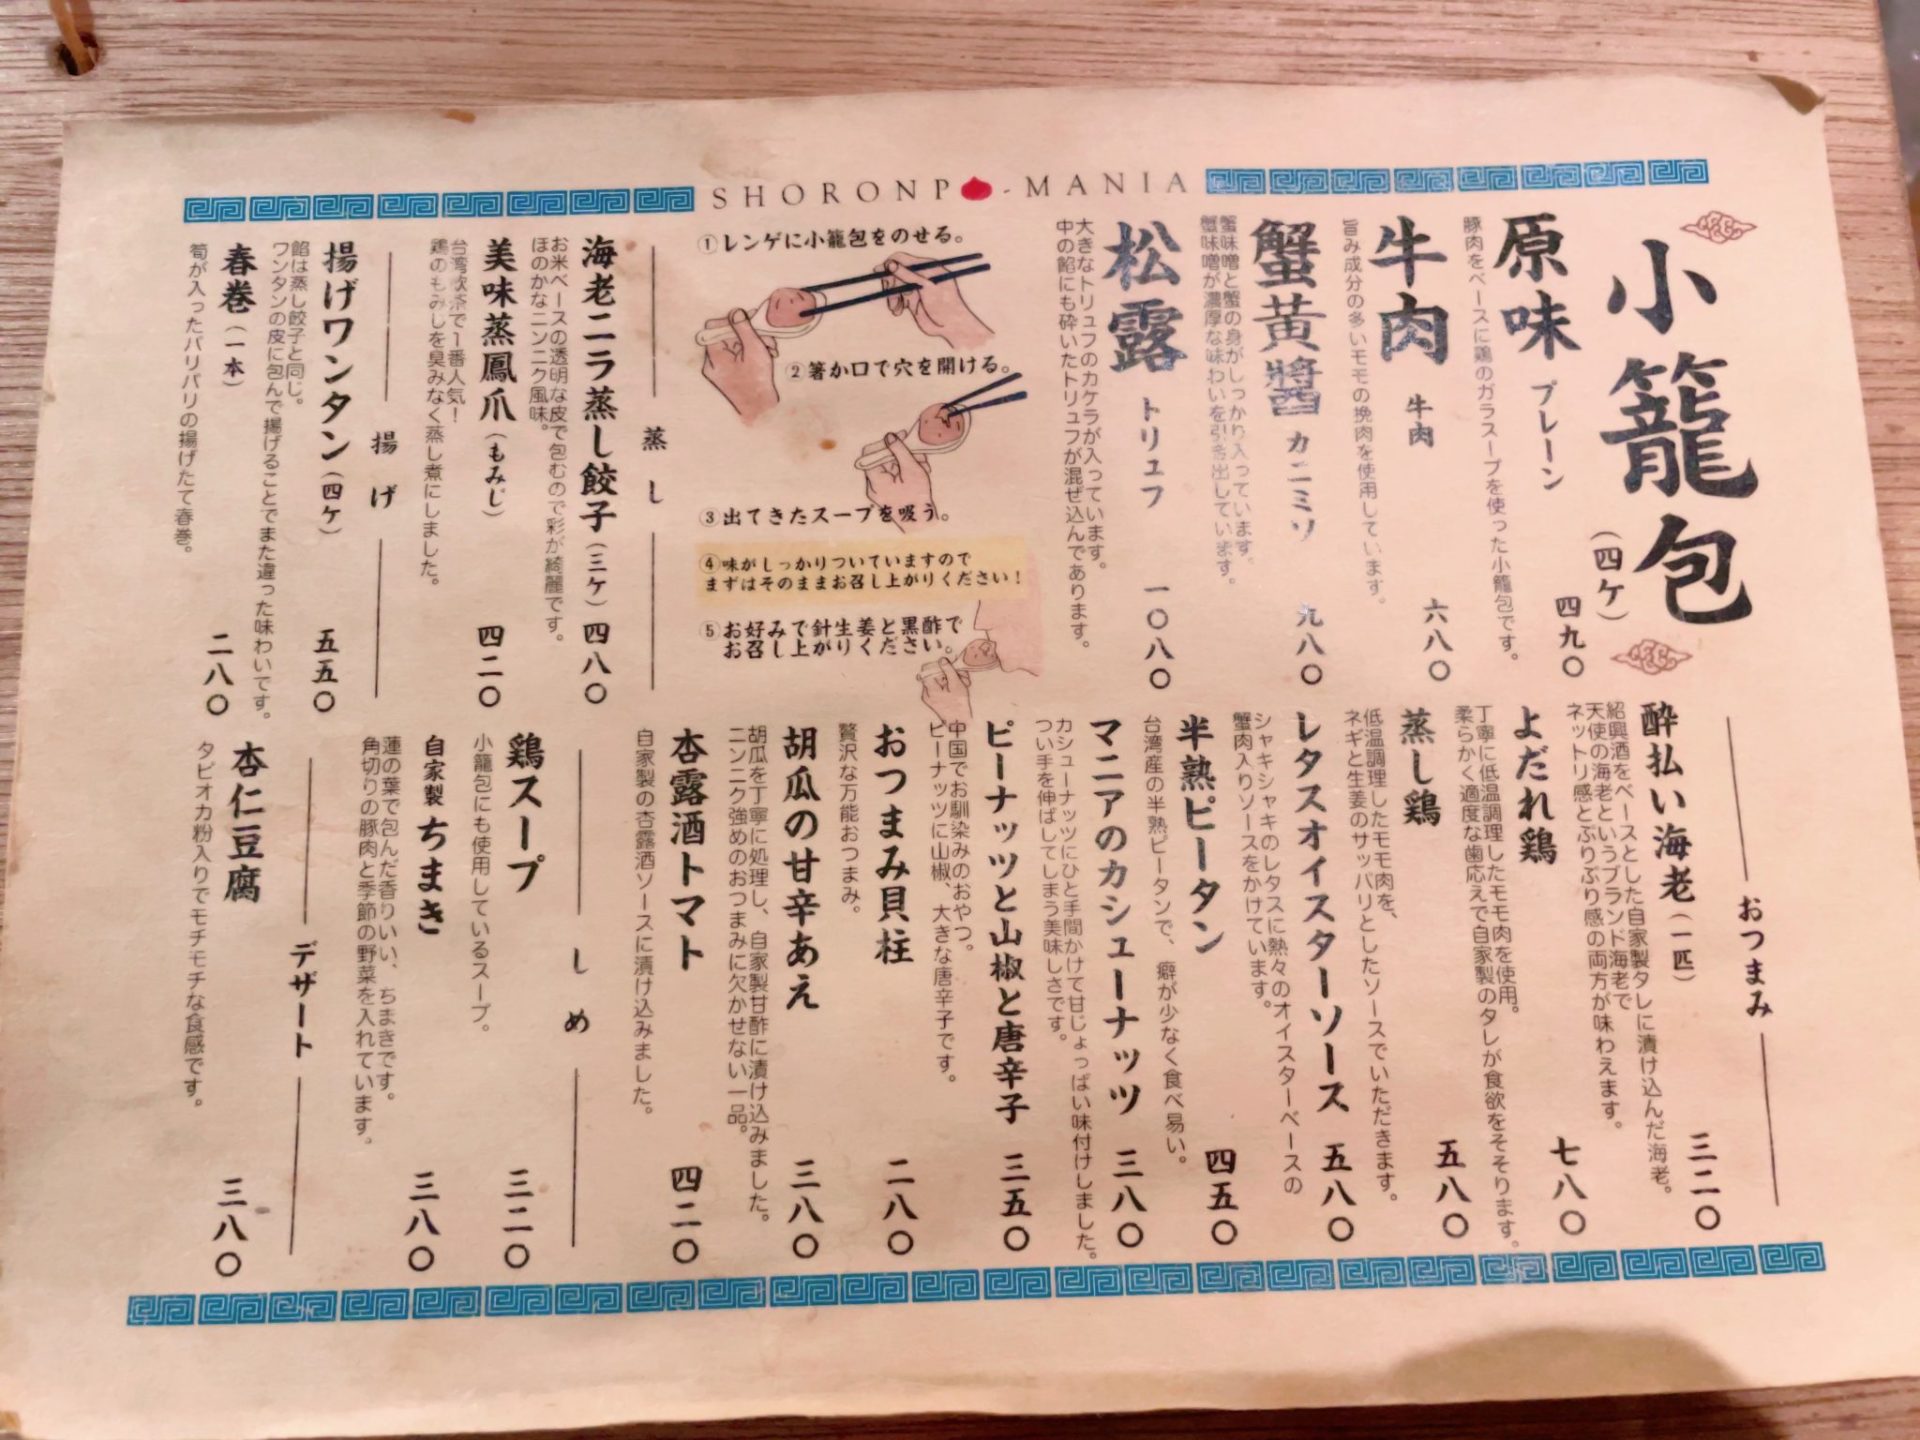 SHORONPO-MANIA
小籠包
(四ケ)
原味 プレーン 四九〇
豚肉をベースに鶏のガラスープを使った小籠包です。
牛肉 牛肉 六八〇
旨み成分の多いモモの挽肉を使用しています。
蟹黄醬 カニミソ 九八〇
蟹味噌と蟹の身がしっかり入っています。
蟹味噌が濃厚な味わいを引き出しています。
松露 トリュフ 一〇八〇
大きなトリュフのカケラが入っています。
中の餡にも砕いたトリュフが混ぜ込んであります。
①レンゲに小籠包をのせる。
②箸か口で穴を開ける。
③出てきたスープを吸う。
④味がしっかりついていますので
まずはそのままお召し上がりください！
⑤お好みで針生姜と黒酢で
お召し上がりください。
蒸し
海老ニラ蒸し餃子(三ケ) 四八〇
お米ベースの透明な皮で包むので彩が綺麗です。
ほのかなニンニク風味。
美味蒸鳳爪(もみじ) 四二〇
台湾飲茶で1番人気！
鶏のもみじを臭みなく蒸し煮にしました。
揚げ
揚げワンタン(四ケ) 五五〇
餡は蒸し餃子と同じ。
ワンタンの皮に包んで揚げることでまた違った味わいです。
春巻(一本) 二八〇
筍が入ったパリパリの揚げたて春巻。
おつまみ
酔払い海老(一匹) 三二〇
紹興酒をベースとした自家製タレに漬け込んだ海老。
天使の海老というブランド海老で
ネットリ感とぷりぷり感の両方が味わえます。
よだれ鶏 七八〇
丁寧に低温調理したモモ肉を使用。
柔らかく適度な歯応えで自家製のタレが食欲をそそります。
蒸し鶏 五八〇
低温調理したモモ肉を、
ネギと生姜のサッパリとしたソースでいただきます。
レタスオイスターソース 五八〇
シャキシャキのレタスに熱々のオイスターベースの
蟹肉入りソースをかけています。
半熟ピータン 四五〇
台湾産の半熟ピータンで、癖が少なく食べ易い。
マニアのカシューナッツ 三八〇
カシューナッツにひと手間かけて甘じょっぱい味付けしました。
つい手を伸ばしてしまう美味しさです。
ピーナッツと山椒と唐辛子 三五〇
中国でお馴染みのおやつ。
ピーナッツに山椒、大きな唐辛子です。
おつまみ貝柱 二八〇
贅沢な万能おつまみ。
胡瓜の甘辛あえ 三八〇
胡瓜を丁寧に処理し、自家製甘酢に漬け込みました。
ニンニク強めのおつまみに欠かせない一品。
杏露酒トマト 四二〇
自家製の杏露酒ソースに漬け込みました。
しめ
鶏スープ 三二〇
小籠包にも使用しているスープ。
自家製ちまき 三八〇
蓮の葉で包んだ香りいい、ちまきです。
角切りの豚肉と季節の野菜を入れています。
デザート
杏仁豆腐 三八〇
タピオカ粉入りでモチモチな食感です。